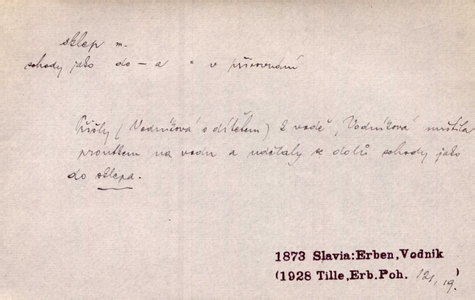 sklep m.
schody jako do – a " v přirovnání
Přišly (Vodníčková s dítětem) k vodě, Vodníčková mrštila
proutkem na vodu a udělaly se dolů schody jako
do sklepa.
1873 Slavia:Erben,Vodník
(1928 Tille,Erb.Poh. 121, 19)